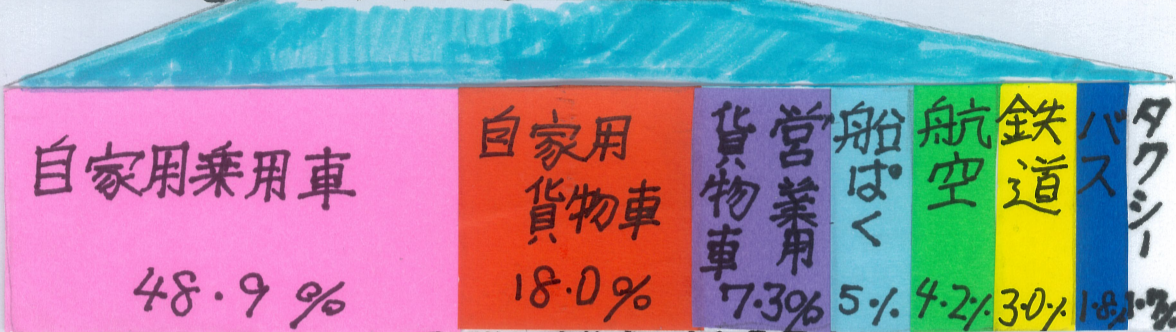 自家用乗用車
48.9%
自家用
貨物車
18.0%
営業用
貨物車
7.3%
船ぱく
5%
航空
4.2%
鉄道
3.0%
バス
1.8%
タクシー